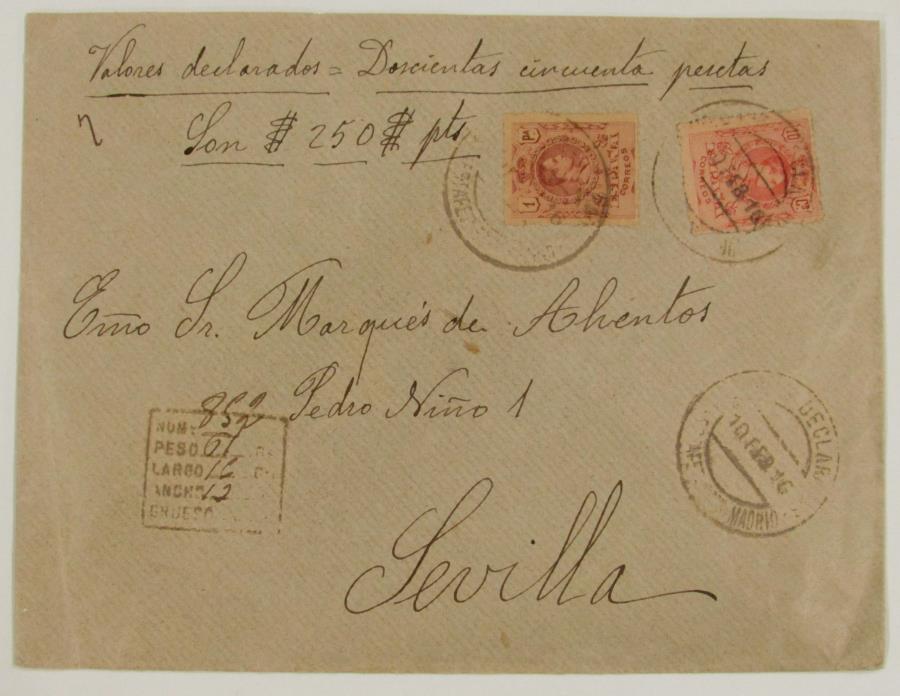 Valores declarados = Doscientas cincuenta pesetas
Son # 250 # pts
1 PTA
CORREOS
10 CS
CORREOS
Emo Sr. Marqués de Ahentos
Pedro Niño 1
852
NUM:
PESO 67 GR
LARGO 16 C
ANCHO 12
GRUESO
DECLAR
10 FEB 16
MADRID
Sevilla